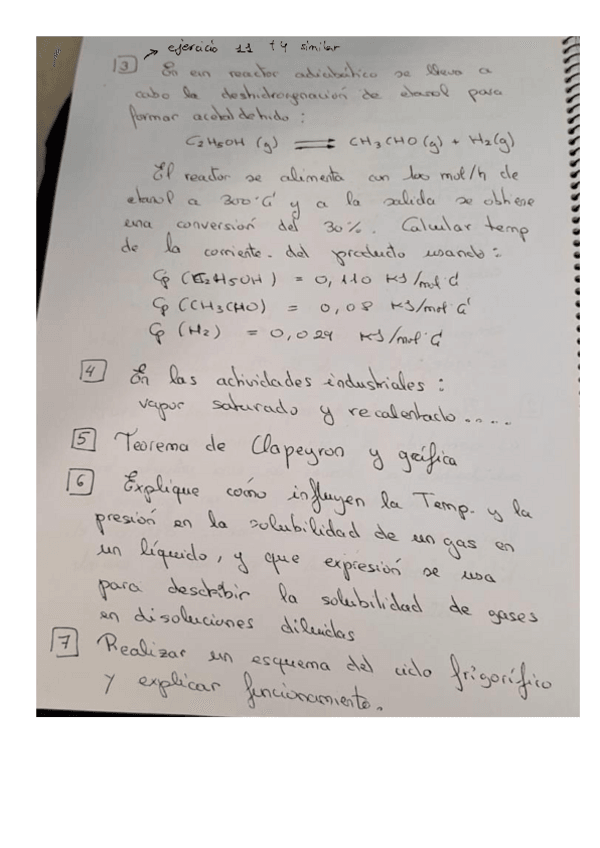 → ejercicio 11 t4 similar
3 En un reactor adiabático se lleva a
cabo la deshidrogenación de etanol para
formar acetaldehido :
C2H5OH (g) ⇌ CH3CHO (g) + H2(g)
El reactor se alimenta con 100 mol/h de
etanol a 300°C y a la salida se obtiene
una conversión del 30%. Calcular temp
de la corriente. del producto usando :
Cp (C2H5OH) = 0,110 KJ/mol°C
Cp (CH3CHO) = 0,08 KJ/mol°C
Cp (H2) = 0,029 KJ/mol°C
4 En las actividades industriales :
vapor saturado y recalentado.....
5 Teorema de Clapeyron y gráfica
6 Explique cómo influyen la Temp. y la
presión en la solubilidad de un gas en
un líquido, y que expresión se usa
para describir la solubilidad de gases
en disoluciones diluidas
7 Realizar un esquema del ciclo frigorífico
y explicar funcionamiento.